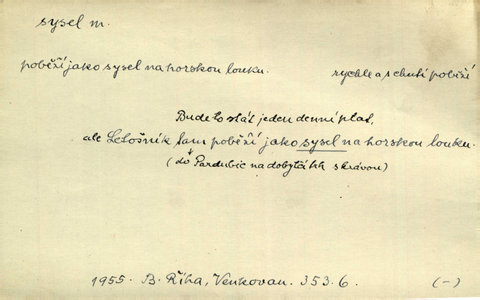 sysel m.
poběží jako sysel na horskou louku. rychle a s chutí poběží
Bude to stát jeden denní plat,
ale Letošník tam poběží jako sysel na horskou louku.
(do Pardubic na dobytčí trh s krávou)
1955. B. Říha, Venkovan. 353.6. (-)